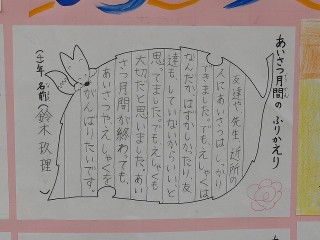 あいさつ月間のふりかえり
友達や先生、近所の
人にあいさつは、しっかり
できました。でも、えしゃくは
なんだか、はずかしかったり、友
達も、していないからいい、と
思ってました。でも、えしゃくも
大切だと思いました。あい
さつ月間が終わっても、
あいさつやえしゃくを
がんばりたいです。
年 名前(鈴木 玖理)